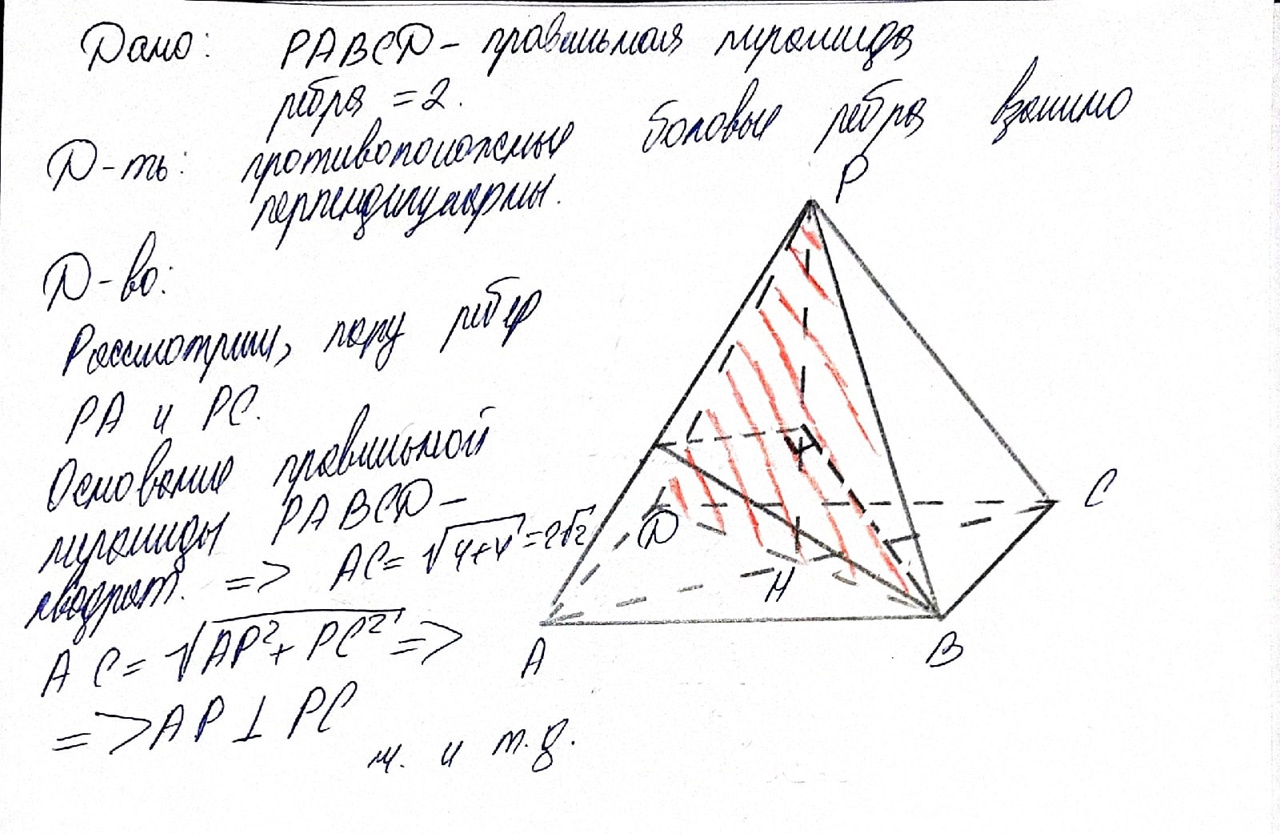 Дано: PABCD - правильная пирамида
ребра = 2.
Д-ть: противоположные боковые ребра взаимно
перпендикулярны.
Д-во:
Рассмотрим, пару ребер
PA и PC.
Основание правильной
пирамиды PABCD -
квадрат. => AC = √4+4 = 2√2
AC = √AP²+PC² =>
=> AP ⊥ PC
ч. и т.д.
P
C
D
H
A
B